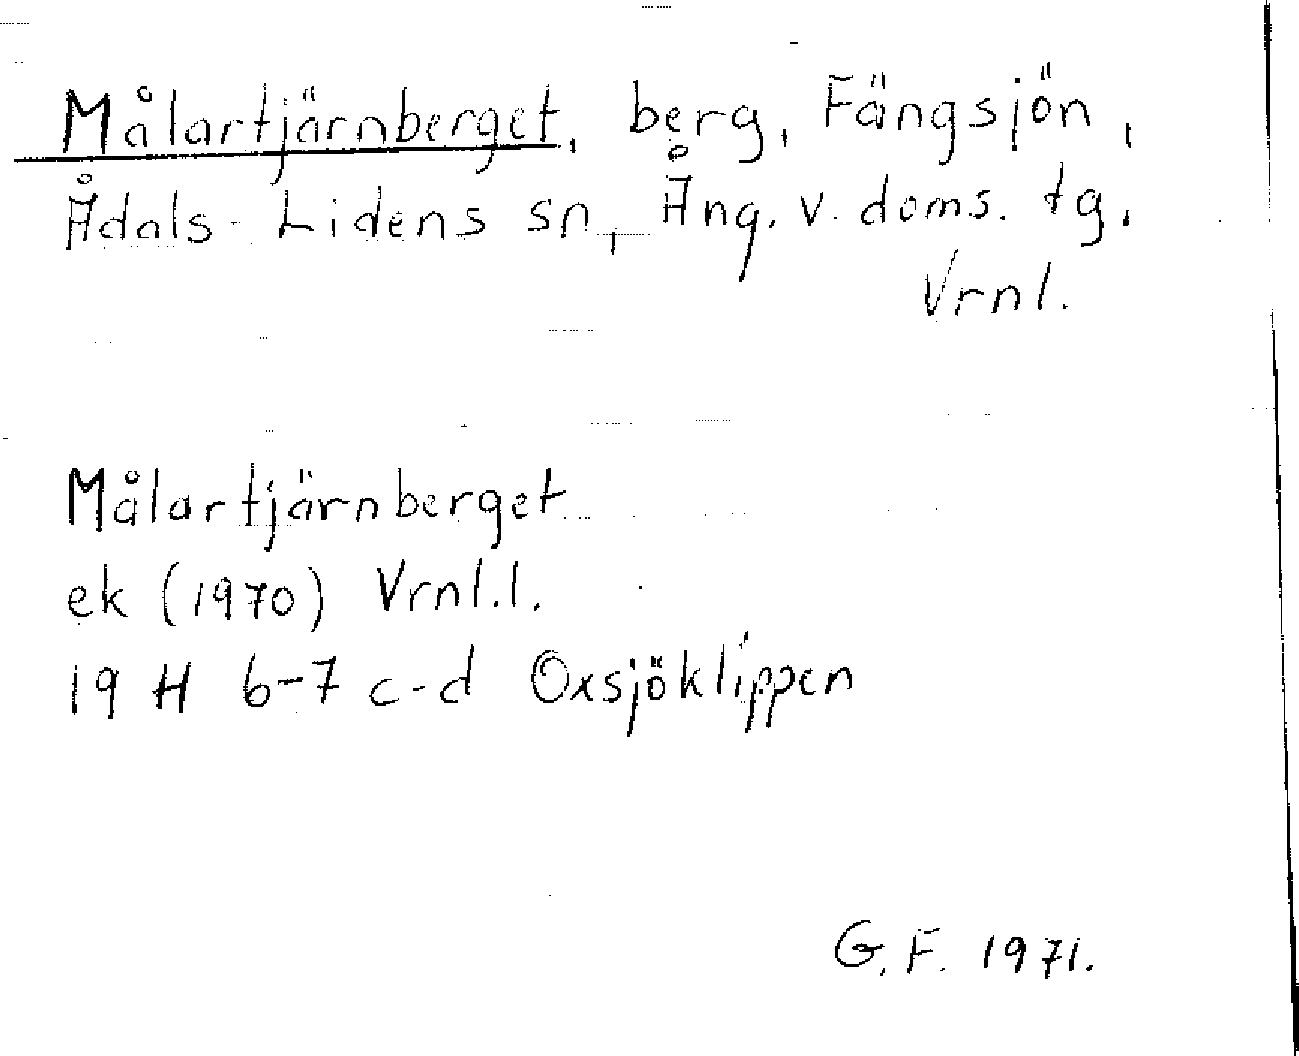 Målartjärnberget, berg, Fängsjön,
Ådals-Lidens sn, Ång. v. doms. tg,
Vrnl.
Målartjärnberget
ek (1970) Vrnl.l.
19 H 6-7 c-d Oxsjöklippen
G. F. 1971.